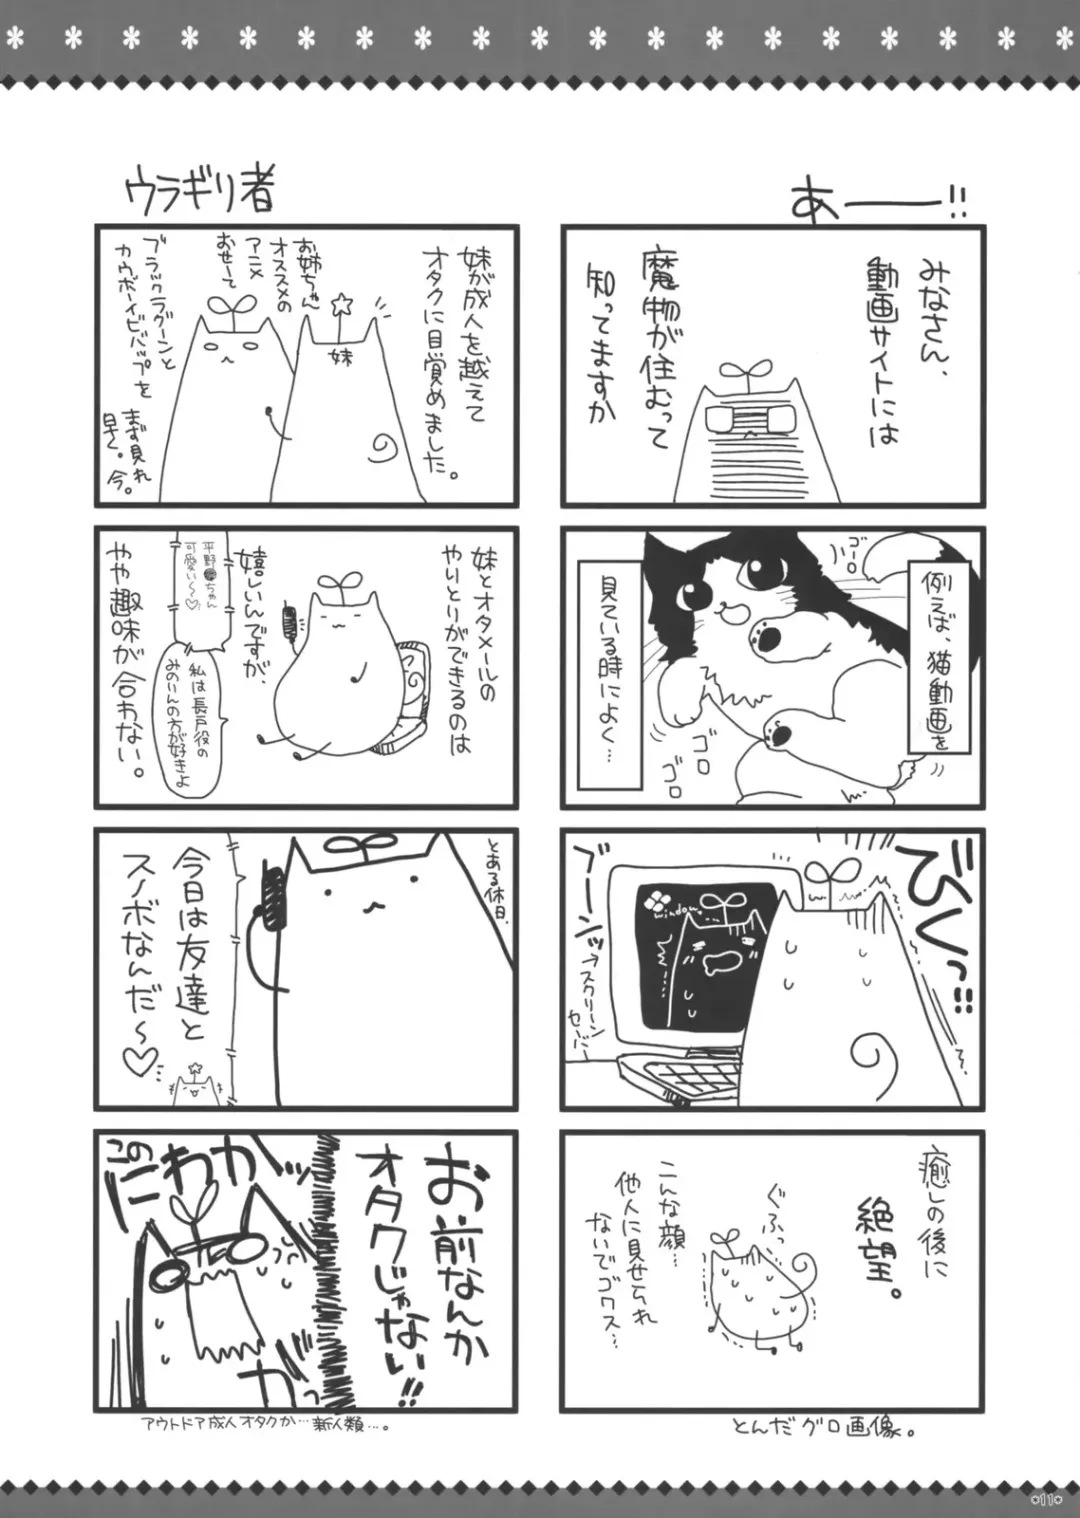 あ――!!
みなさん、
動画サイトには
魔物が住むって
知ってますか
例えば、猫動画を
見ている時によく…
ゴーロ
ゴロ
ゴロ
びくっ!!
ブーンッ
→スクリーン
セーバー
window
癒しの後に
絶望。
ぐふっ
こんな顔…
他人に見せられ
ないでゴワス…
とんだグロ画像。
ウラギリ者
妹が成人を越えて
オタクに目覚めました。
お姉ちゃん
オススメの
アニメ
おせーて
妹
ブラックラグーンと
カウボーイビバップを
まず見れ
早く。今。
妹とオタメールの
やりとりができるのは
嬉しいんですが、
平野●ちゃん
可愛い〜♡
私は長戸役の
みのりんの方が好きよ
やや趣味が合わない。
とある休日、
今日は友達と
スノボなんだ〜♡
お前なんか
オタクじゃない!!
この
にわかッ
カッ
アウトドア成人オタクか…新人類…。
11